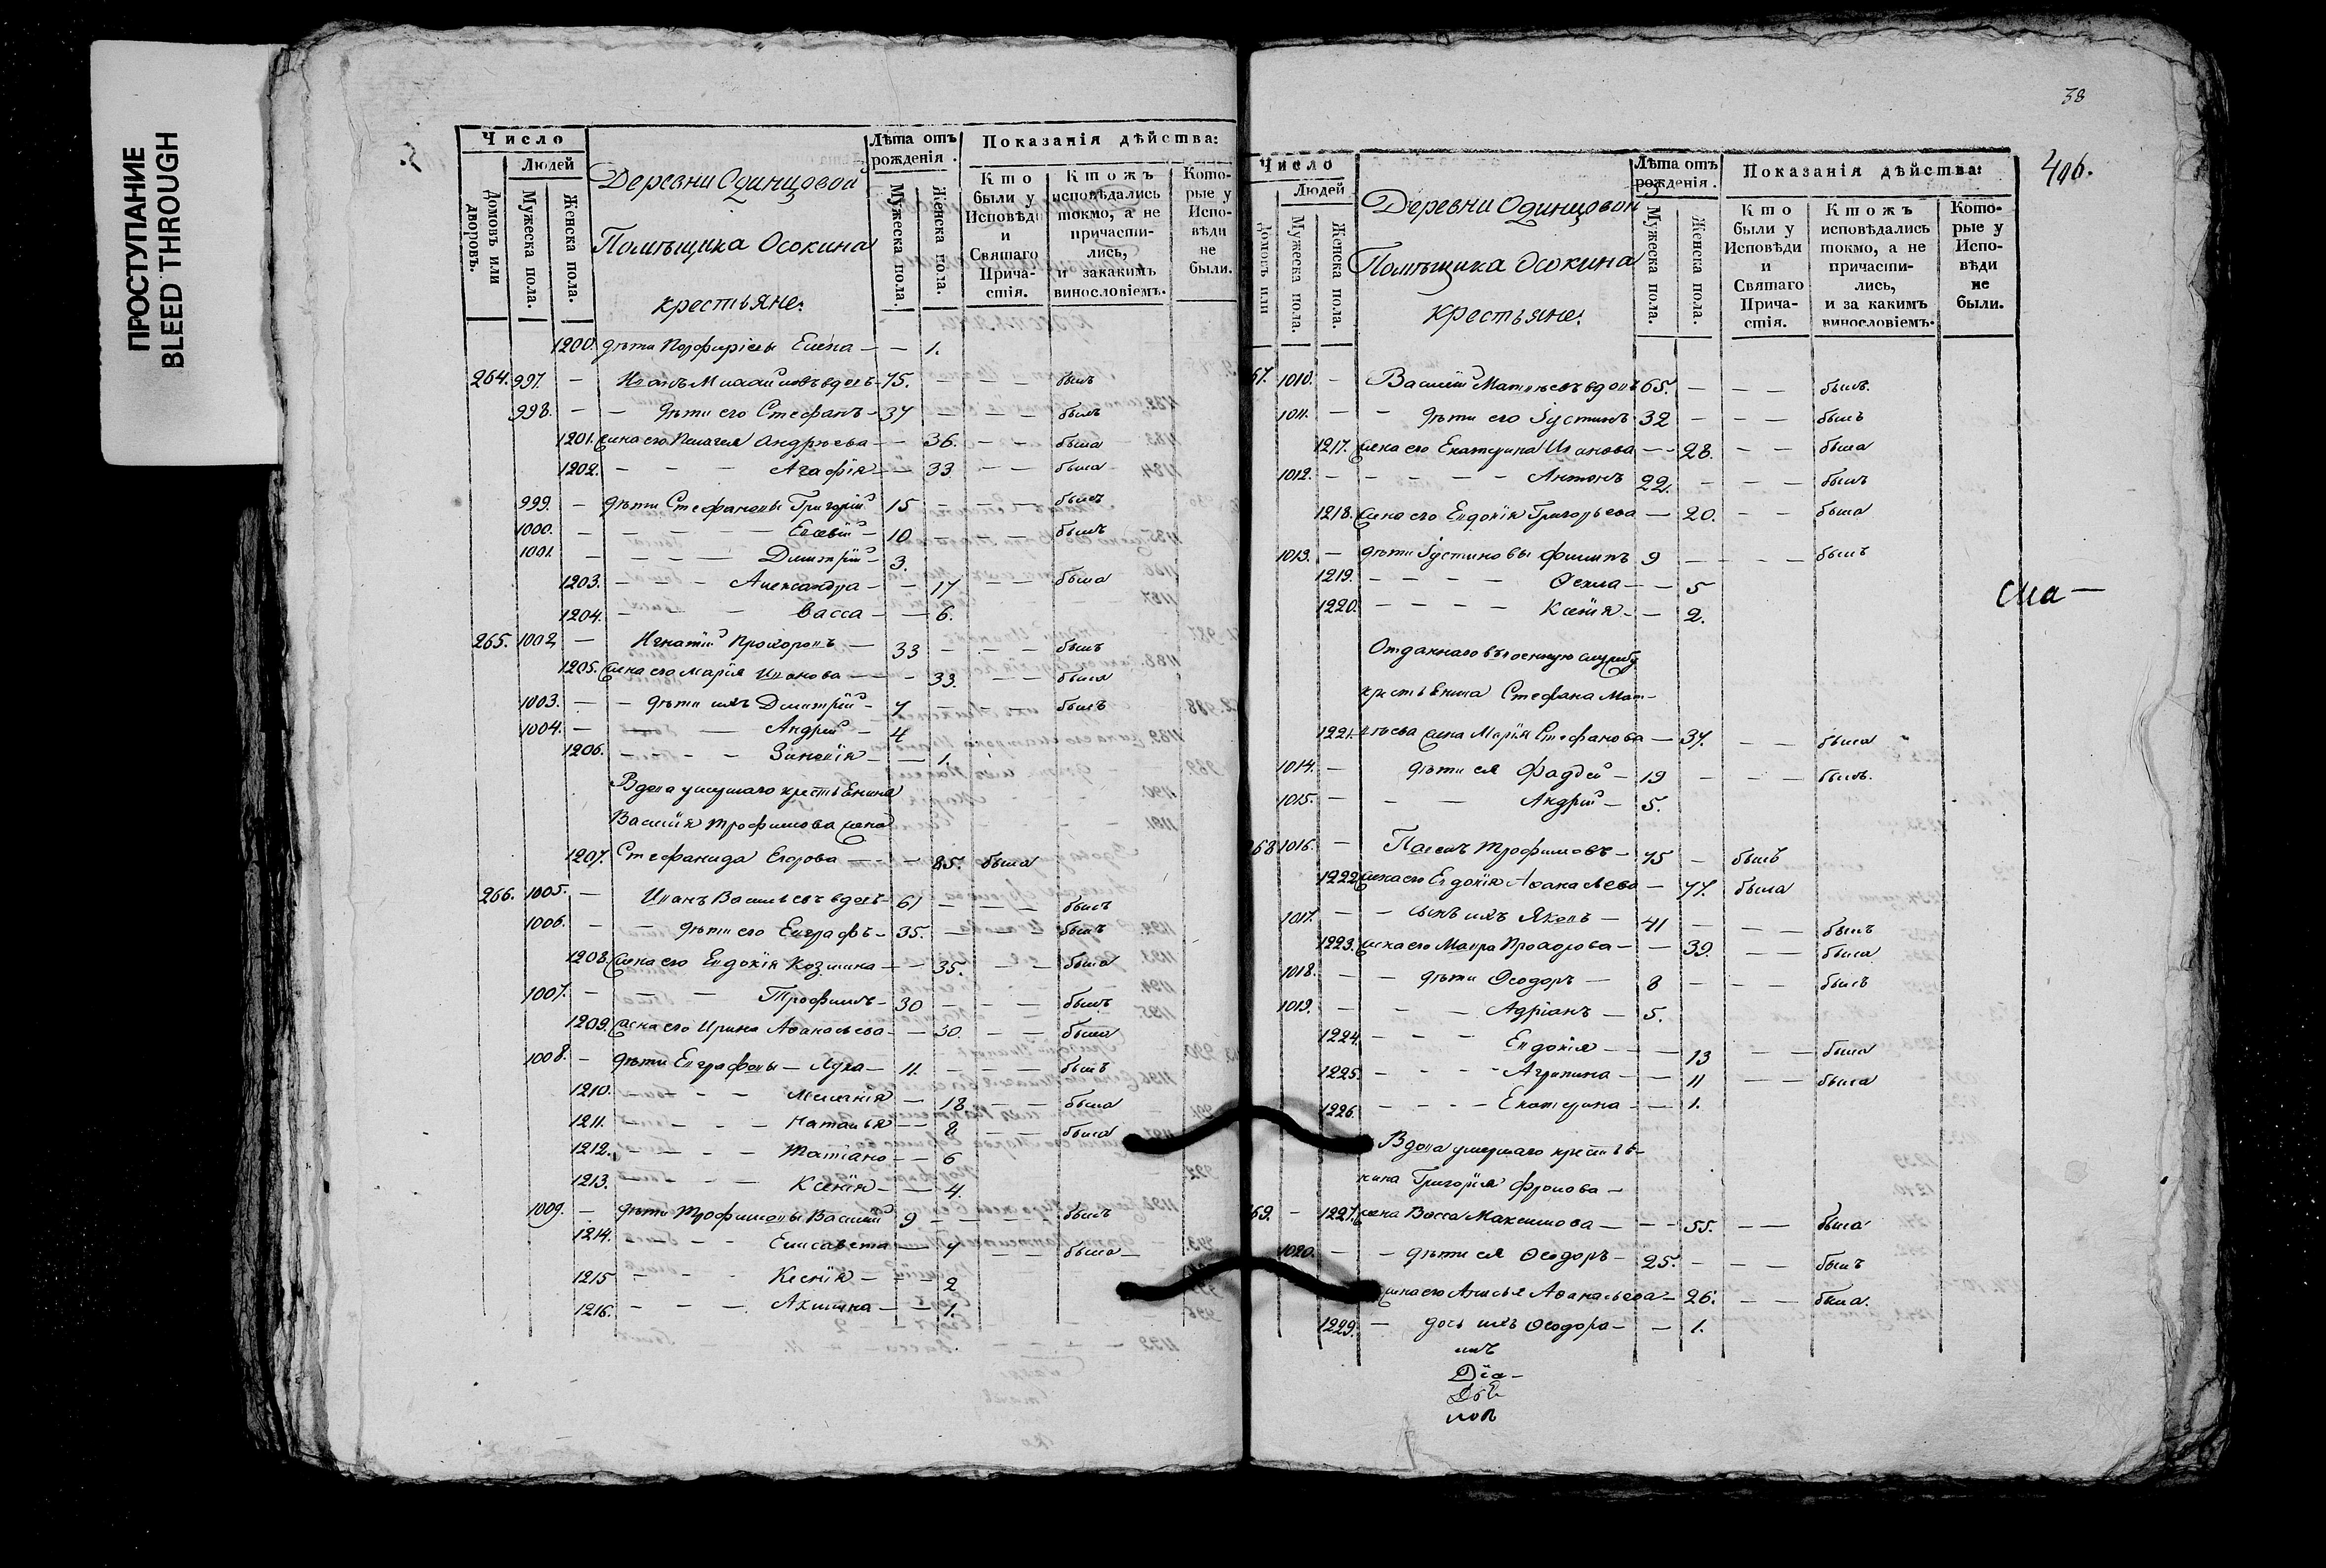 ПРОСТУПАНИЕ
BLEED THROUGH
Число
Людей
Домовъ или дворовъ.
Мужеска пола.
Женска пола.
Деревни Одинцовой
Помѣщика Осокина
крестьяне.
Лѣта отъ рожденія.
Мужеска пола.
Женска пола.
Показанія дѣйства:
Кто были у Исповѣди и Святаго Прича-стія.
Ктожъ исповѣдались токмо, а не причасти-лись, и закакимъ винословіемъ.
Кото-рые у Испо-вѣди не были.
1200. дѣти Порфиріевы Елена — — 1.
264. 997. — вдовъ — 75. — — — былъ
998. — — дѣти его Стефанъ — 37 — — — былъ
1201. жена его Пелагея Андрѣева — — 36. — — была
1202. — — — Агафія — — 33 — — была
999. — дѣти Стефановы Григорій 15 — — — былъ
1000. — — — — — 10 — — — былъ
1001. — — — — Димитрій — 3.
1203. — — — Александра — — 17 — — была
1204. — — — Васса — — 6.
265. 1002. — Игнатій Прохоровъ — 33 — — — былъ
1205. жена его Марія Иванова — — 33. — — была
1003. — — дѣти ихъ Димитрій — 7 — — — былъ
1004. — — — Андрей — 4
1206. — — — Зиновія — — 1.
Вдова умершаго крестьянина
Василія Трофимова жена
1207. Стефанида Егорова — — 85. была
266. 1005. — Иванъ Васильевъ вдовъ — 61 — — — былъ
1006. — — дѣти его Евграфъ — 35. — — — былъ
1208. жена его Евдокія Козмина — — 35. — — была
1007. — — — Трофимъ — 30 — — — былъ
1209. жена его Ирина Аѳанасьева — — 30. — — была
1008. — дѣти Евграфовы — Лука — 11. — — — былъ
1210. — — — Меланія — 18. — — была
1211. — — — Наталья — — 8 — — была
1212. — — — — Татіана — — 6
1213. — — — Ксенія — — 4.
1009. — дѣти Трофимовы Василій 9 — — — былъ
1214. — — — Елисавета — 7 — — была —
1215 — — — Ксенія — — 2
1216. — — — Акилина — — 1.
38
406.
Число
Людей
Домовъ или
Мужеска пола.
Женска пола.
Деревни Одинцовой
Помѣщика Осокина
крестьяне.
Лѣта отъ рожденія.
Мужеска пола.
Женска пола.
Показанія дѣйства:
Кто были у Исповѣди и Святаго Прича-стія.
Ктожъ исповѣдались токмо, а не причасти-лись, и за какимъ винословіемъ.
Кото-рые у Испо-вѣди не были.
67. 1010. — Василій Матвѣевъ вдовъ 65. — — — былъ.
1011. — — дѣти его Іустинъ — 32 — — — былъ
1217. жена его Екатерина Иванова — — 28. — — была
1012. — — — — — Антонъ 22. — — — былъ
1218. жена его Евдокія Григорьева — 20. — — была
1013. — дѣти Іустиновы Филипъ 9 — — — былъ
1219. — — — — Ѳекла — — 5
1220. — — — — Ксенія — — 2.
Отданнаго въ военную службу
крестьянина Стефана Мат-
1221. вѣева жена Марія Стефанова — 37. — — была
1014. — дѣти ея Фаддей — 19 — — — былъ.
1015. — — — Андрей — 5.
68 1016. — Павелъ Трофимовъ — 75 — былъ
1222. жена его Евдокія Аѳанасьева — 77. была
1017. — — сынъ ихъ Яковъ — 41 — — — былъ
1223. жена его Мавра Прохорова — — 39. — — была
1018. — — дѣти Ѳеодоръ — 8 — — — былъ
1019. — — — Адріанъ — 5.
1224. — — — Евдокія — — — 13 — — была
1225. — — — Агрипина — — 11 — — была
1226. — — — — Екатерина — — 1.
Вдова умершаго крестья-
нина Григорія Фролова —
69. — 1227. жена Васса Максимова — — — 55. — — была
1020. — — дѣти ея Ѳеодоръ — 25. — — — былъ
жена его Анисья Аѳанасьева — 26. — — была.
1229. — дочь ихъ Ѳеодора — — 1.
Діа-